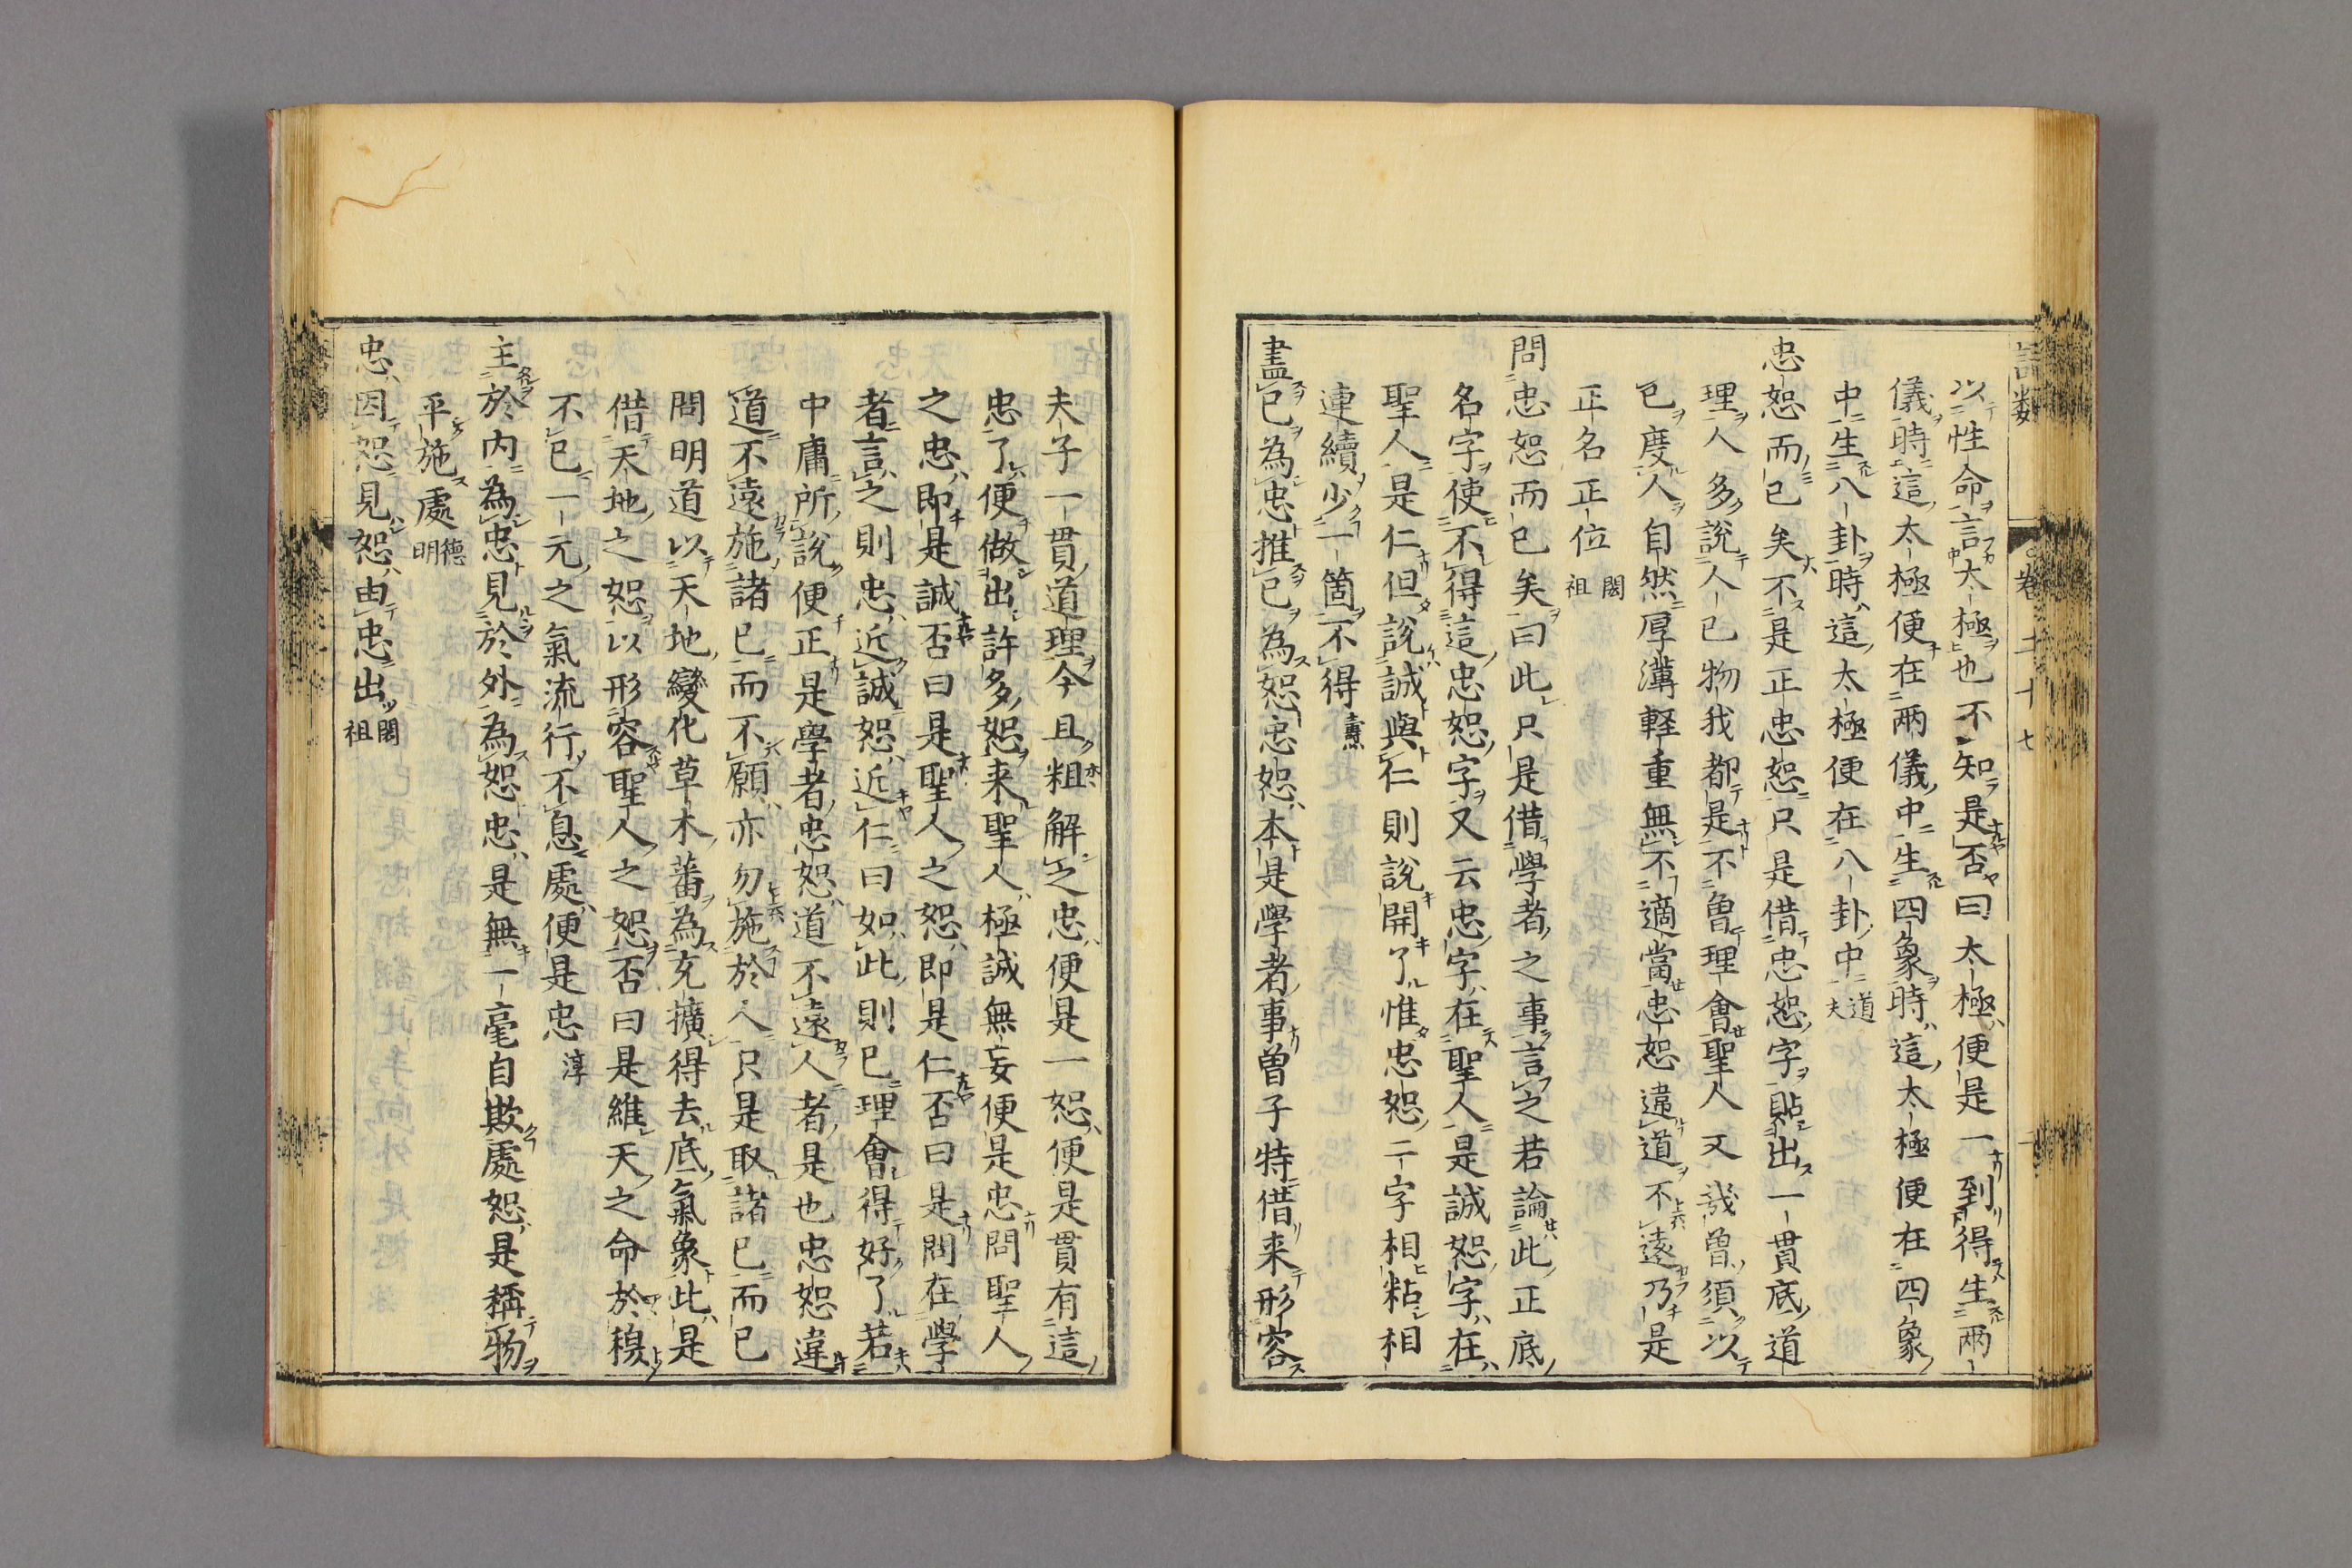 語類 卷二十七
以性命言太極也不知是否曰太極便是一到得生兩
儀時這太極便在兩儀中生四象時這太極便在四象
中生八卦時這太極便在八卦中道夫
忠恕而已矣不是正忠恕只是借忠恕字貼出一貫底道
理人多說人己物我都是不曾理會聖人又幾曾須以
己度人自然厚薄輕重無不適當忠恕違道不遠乃是
正名正位閎祖
問忠恕而已矣曰此只是借學者之事言之若論此正底
名字使不得這忠恕字又云忠字在聖人是誠恕字在
聖人是仁但說誠與仁則說開了惟忠恕二字相粘相
連續少一箇不得燾
盡己為忠推己為恕忠恕本是學者事曾子特借来形容
夫子一貫道理今且粗解之忠便是一恕便是貫有這
忠了便做出許多恕来聖人極誠無妄便是忠問聖人
之忠即是誠否曰是聖人之恕即是仁否曰是問在學
者言之則忠近誠恕近仁曰如此則已理會得好了若
中庸所說便正是學者忠恕道不遠人者是也忠恕違
道不遠施諸己而不願亦勿施於人只是取諸己而已
問明道以天地變化草木蕃為充擴得去底氣象此是
借天地之恕以形容聖人之恕否曰是維天之命於穆
不已一元之氣流行不息處便是忠淳
主於內為忠見於外為恕忠是無一毫自欺處恕是稱物
平施處德明
忠因恕見恕由忠出閎祖